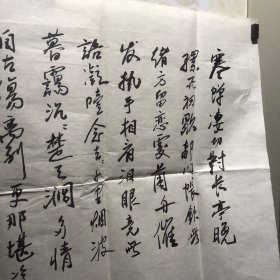 寒蟬淒切對長亭晚
驟雨初歇都門帳飲無
緒方留戀處蘭舟催
發執手相看淚眼竟無
語凝噎念去去千里煙波
暮靄沉沉楚天闊多情
自古傷離別更那堪冷